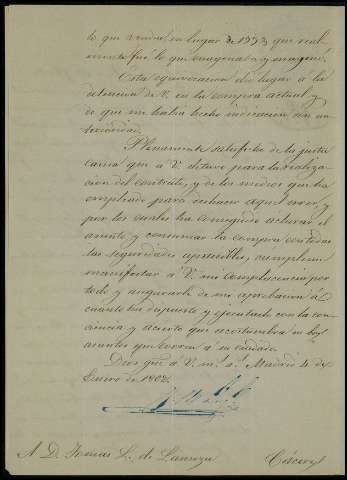 lo que vendió, en lugar de 1993, que real
mente fué lo que
Esta equivocacion dió lugar á la
detencion de V. en la compra actual y
de que me habia hecho indicacion con an
terioridad.
Plenamente satisfecho de la justa
causa que á V. detuvo para la realiza
cion del contrato, y de los medios que ha
empleado para rechazar aquel error, y
por los cuales ha conseguido aclarar el
asunto y consumar la compra con todas
las seguridades apetecibles, cumpleme
manifestar á V. mi complacencia por
todo y asegurarle de mi aprobacion á
cuanto ha dispuesto y ejecutado con la con
ciencia y acierto que acostumbra en los
asuntos que corren á su cuidado.
Dios gue á V. m.s a.s Madrid 4 de
Enero de 1862.
A D. Tomas L. de Lanuza Cáceres